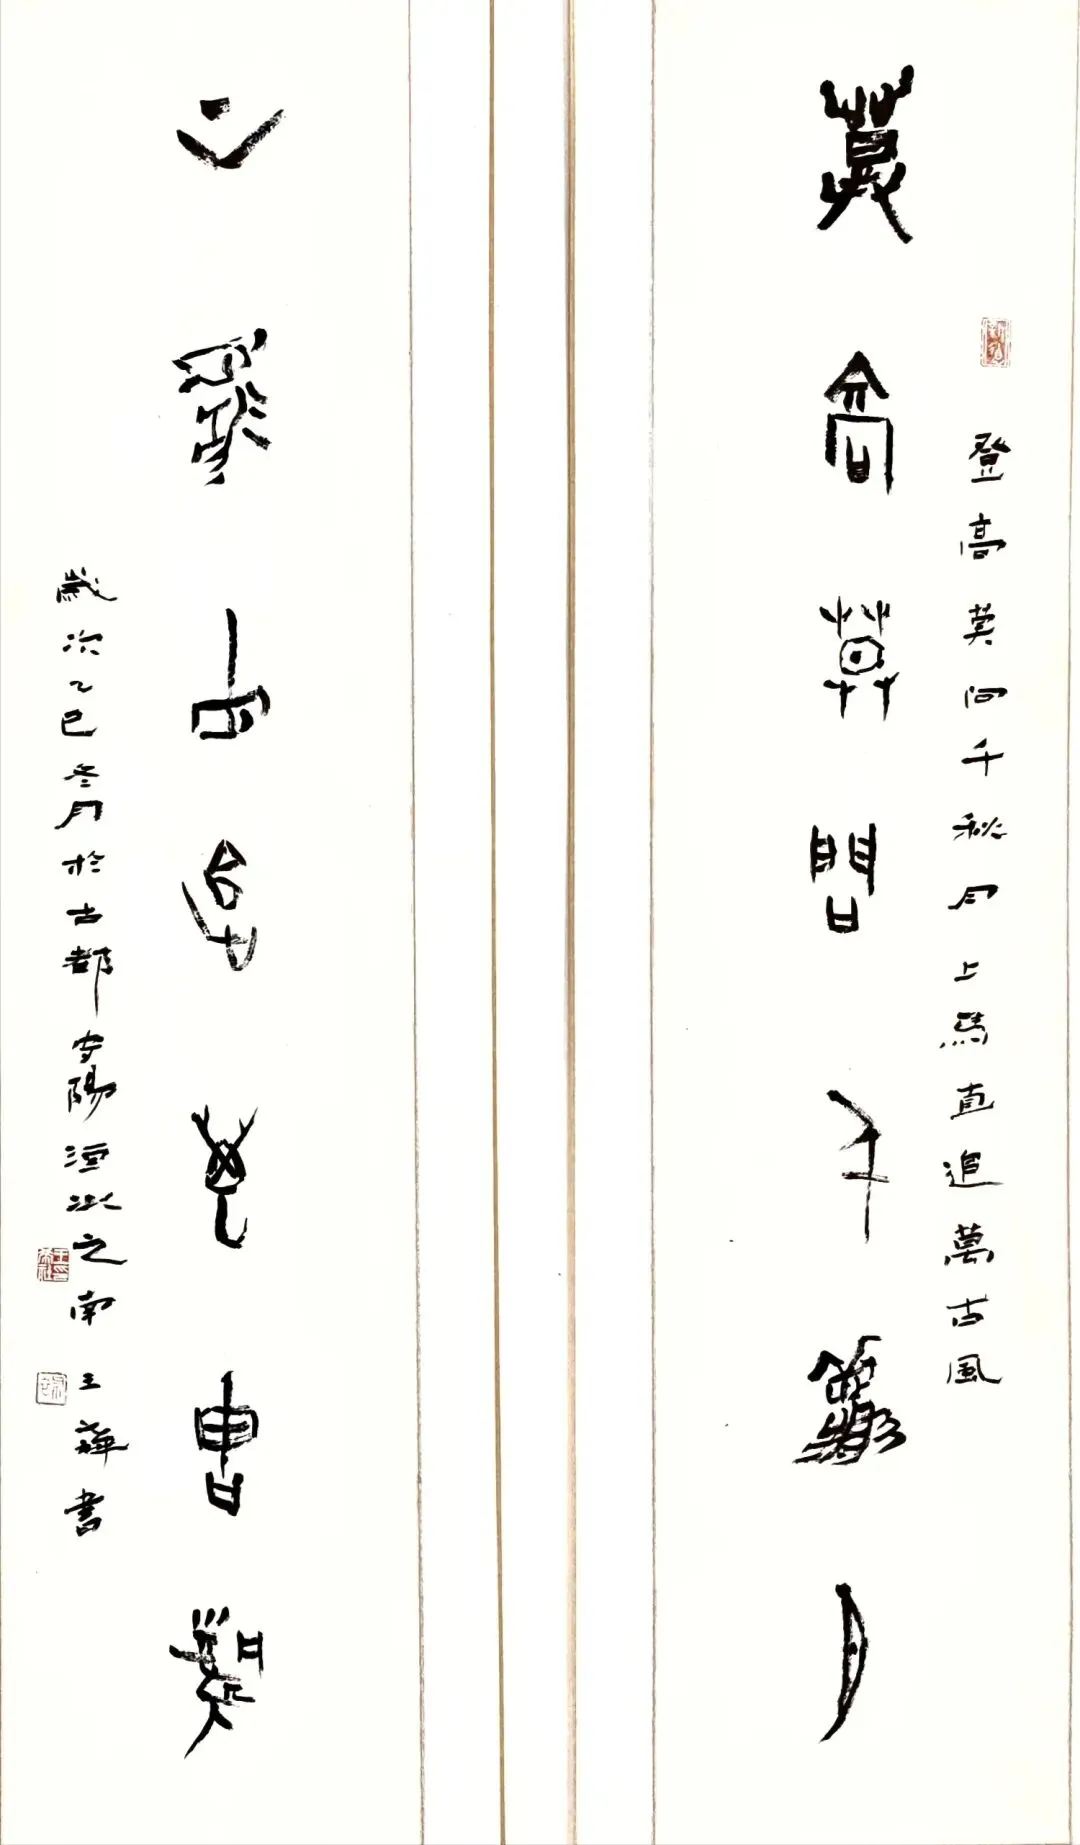 登高莫問千秋月 上馬直追萬古風
登高莫問千秋月
上馬直追萬古風
歲次乙巳冬月於古都安陽洹水之南 王 書